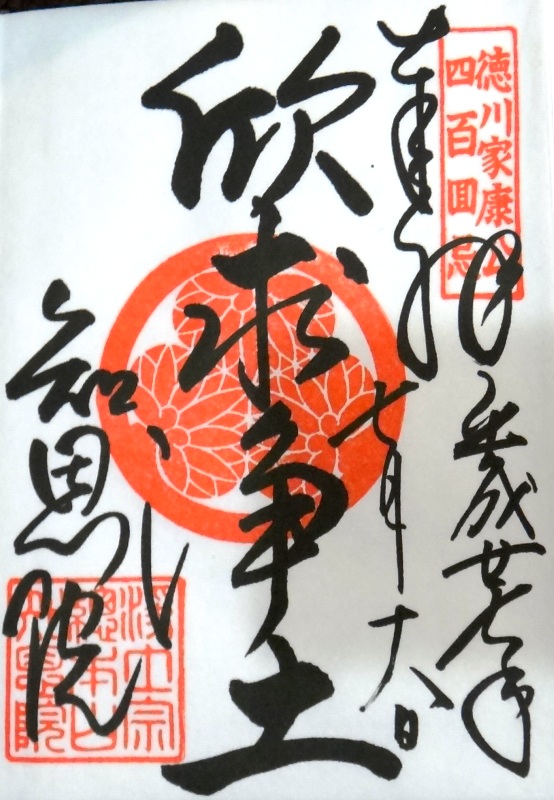 徳川家康公
四百回忌
奉拝
平成廿七年
七月十八日
欣求浄土
知恩院
浄土宗
総本山
知恩院